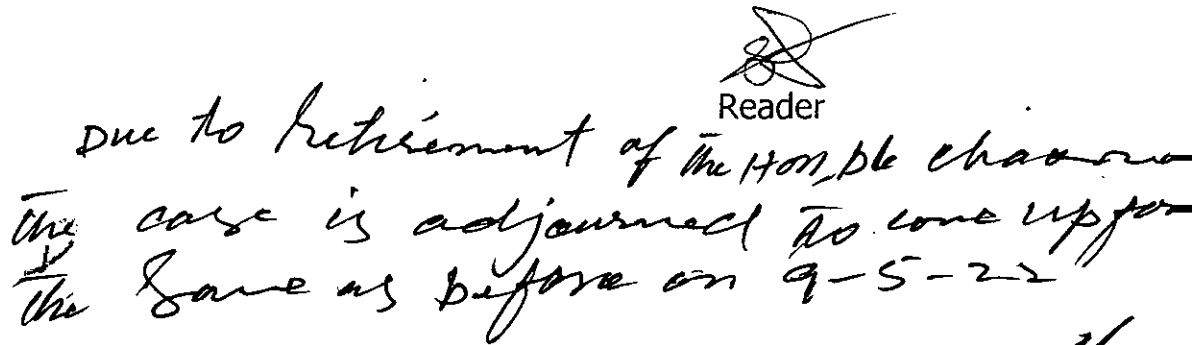 Reader
Due to Retirement of the Hon,ble Chairman
the case is adjourned to come up for
the Same as before on 9-5-22